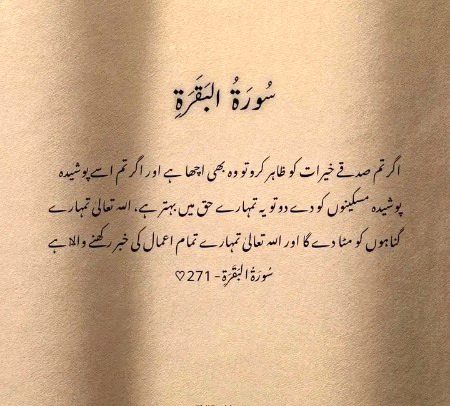 سُورَةُ البَقَرَةِ
اگر تم صدقے خیرات کو ظاہر کرو تو وہ بھی اچھا ہے اور اگر تم اسے پوشیدہ
پوشیدہ مسکینوں کو دے دو تو یہ تمہارے حق میں بہتر ہے، اللہ تعالیٰ تمہارے
گناہوں کو مٹا دے گا اور اللہ تعالیٰ تمہارے تمام اعمال کی خبر رکھنے والا ہے
سُورَةُ البَقَرَةِ - 271 ♡